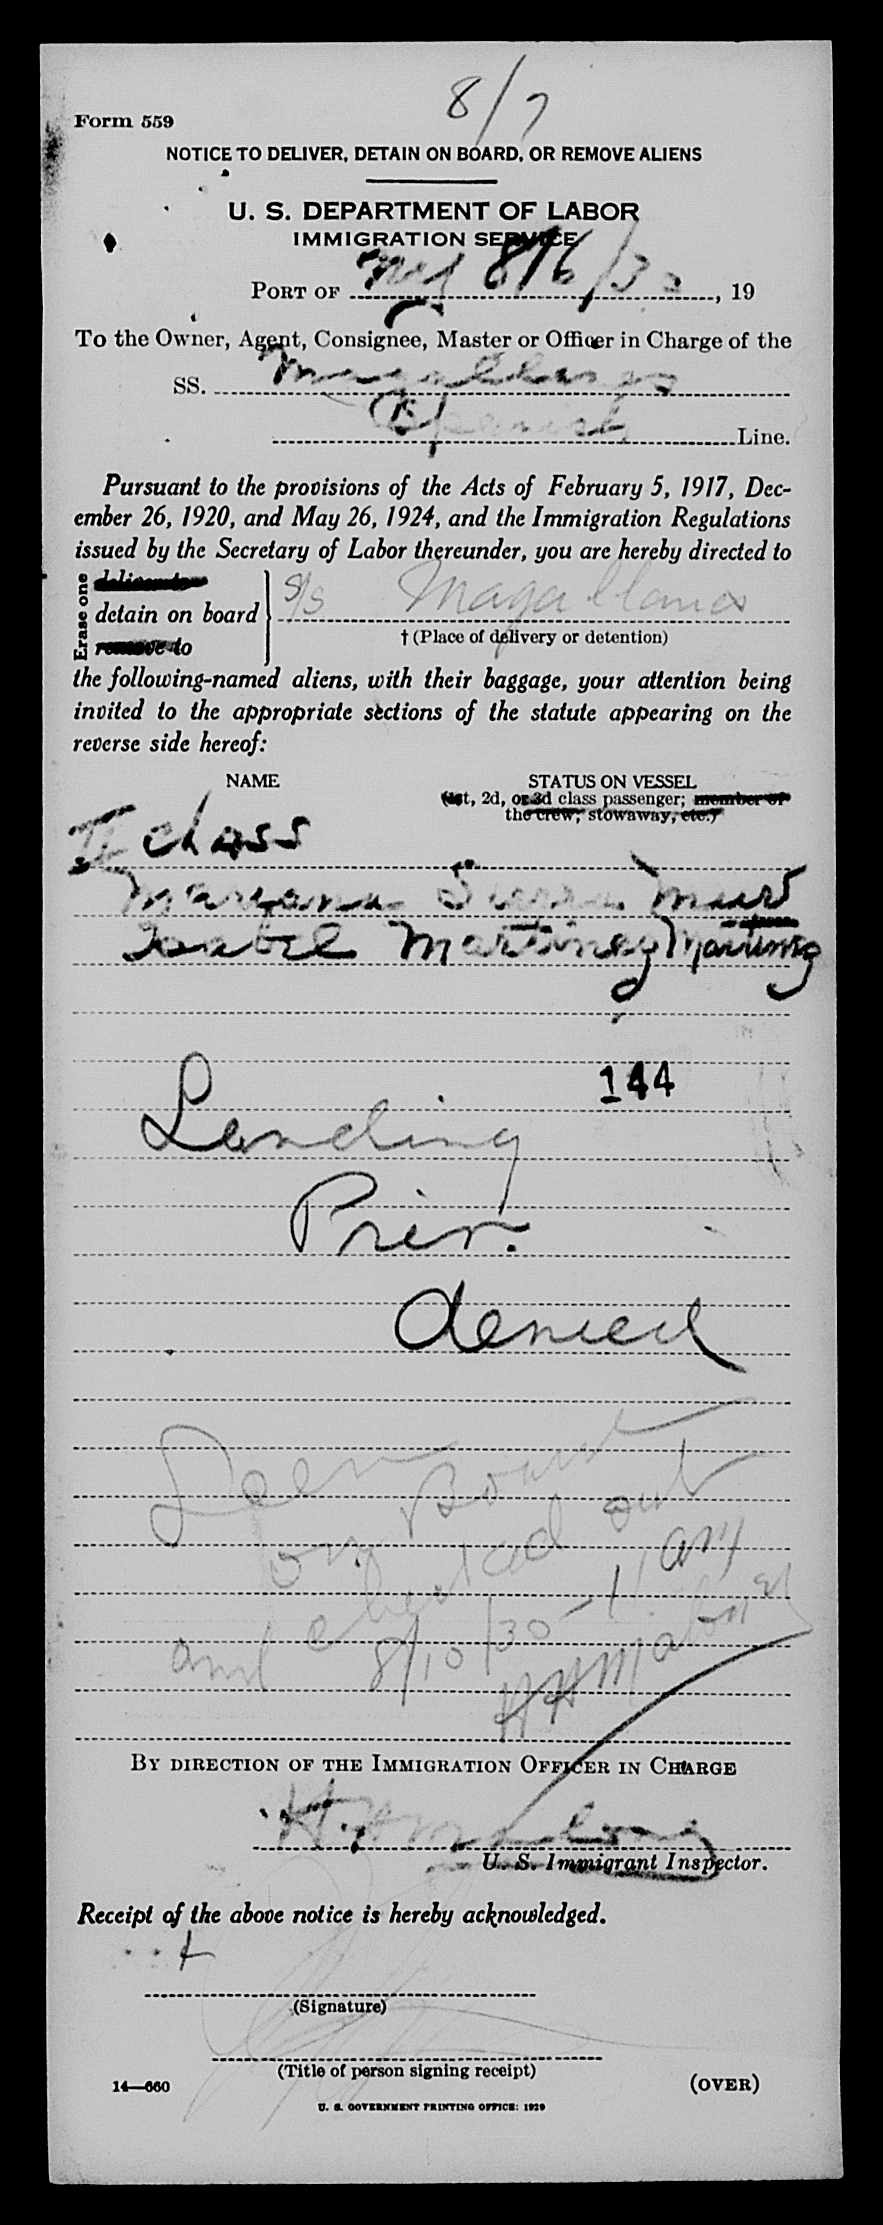 8/7
Form 559
NOTICE TO DELIVER, DETAIN ON BOARD, OR REMOVE ALIENS
U. S. DEPARTMENT OF LABOR
IMMIGRATION SERVICE
PORT OF 8/6/30, 19
To the Owner, Agent, Consignee, Master or Officer in Charge of the
SS. Magallanes
Spanish Line.
Pursuant to the provisions of the Acts of February 5, 1917, Dec-
ember 26, 1920, and May 26, 1924, and the Immigration Regulations
issued by the Secretary of Labor thereunder, you are hereby directed to
Erase one
deliver to
detain on board S/S Magallanes
remove to
† (Place of delivery or detention)
the following-named aliens, with their baggage, your attention being
invited to the appropriate sections of the statute appearing on the
reverse side hereof:
NAME STATUS ON VESSEL
(1st, 2d, or 3d class passenger; member of
the crew; stowaway, etc.)
II class
Mariana Sierra
Isabel Martinez Martinez
144
Landing
Priv.
denied
Seen on Board
and checked out
8/10/30 - 11 am
HHMaloney
BY DIRECTION OF THE IMMIGRATION OFFICER IN CHARGE
H. H. Maloney
U. S. Immigrant Inspector.
Receipt of the above notice is hereby acknowledged.
(Signature)
(Title of person signing receipt)
14—660 (OVER)
U. S. GOVERNMENT PRINTING OFFICE: 1929